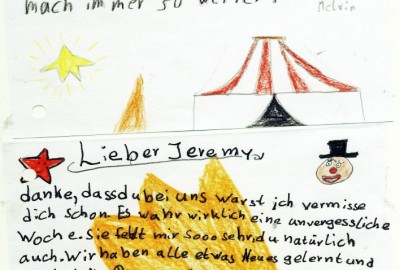 mach immer so weiter!
Melvin
Lieber Jeremy,
danke, dass du bei uns warst ich vermisse
dich schon. Es wahr wirklich eine unvergessliche
Woche. Sie fehlt mir sooo sehr, du natürlich
auch. Wir haben alle etwas Neues gelernt und